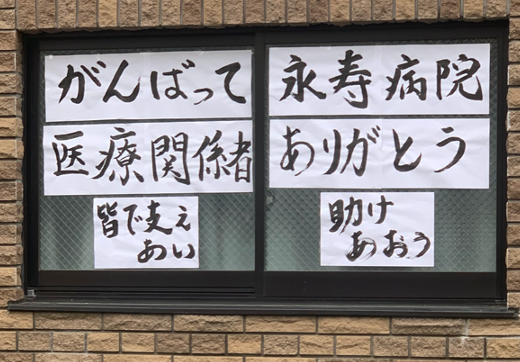 がんばって
医療関係者
皆で支え
あい
永寿病院
ありがとう
助け
あおう